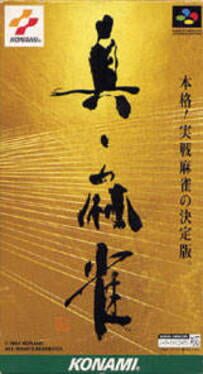 KONAMI
本格！実戦麻雀の決定版。
真・麻雀
© 1994 KONAMI
ALL RIGHTS RESERVED.
KONAMI®